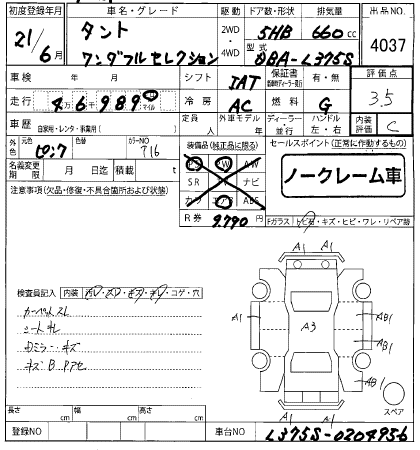 初度登録年月 車名・グレード 駆動 ドア数・形状 排気量 出品NO.
21/6月 タント ワンダフルセレクション 2WD・4WD 5HB 660cc 4037
型式 DBA-L375S
車検 年 月 シフト IAT 保証書 有・無 評価点
走行 4万6千989 マイル 冷房 AC 燃料 G 3.5
車歴 自家用・レンタ・事業用( ) 定員 人 外車モデル ディーラー・並行 ハンドル 左・右 内装評価 C
外色 元色 ピンク 色替 カラーNO 716 装備品(純正品に限る) セールスポイント(正常に作動するもの)
名義変更期限 月 日迄 積載 t
PW
SR ナビ
カワ エアB ABS
ノークレーム車
注意事項(欠品・修復・不具合箇所および状態)
R券 9.790円
Fガラス トビ石・キズ・ヒビ・ワレ・リペア跡
検査員記入 内装 汚レ・スレ・キズ・キレ・コゲ・穴
カーペットスレ
シートキレ
Rミラーキズ
キズB Pアセ
A1
A1
A1
A3
AB1
AB1
AB1
A1
A1
スペア
長さ cm 幅 cm 高さ cm
登録NO 車台NO L375S-0204956